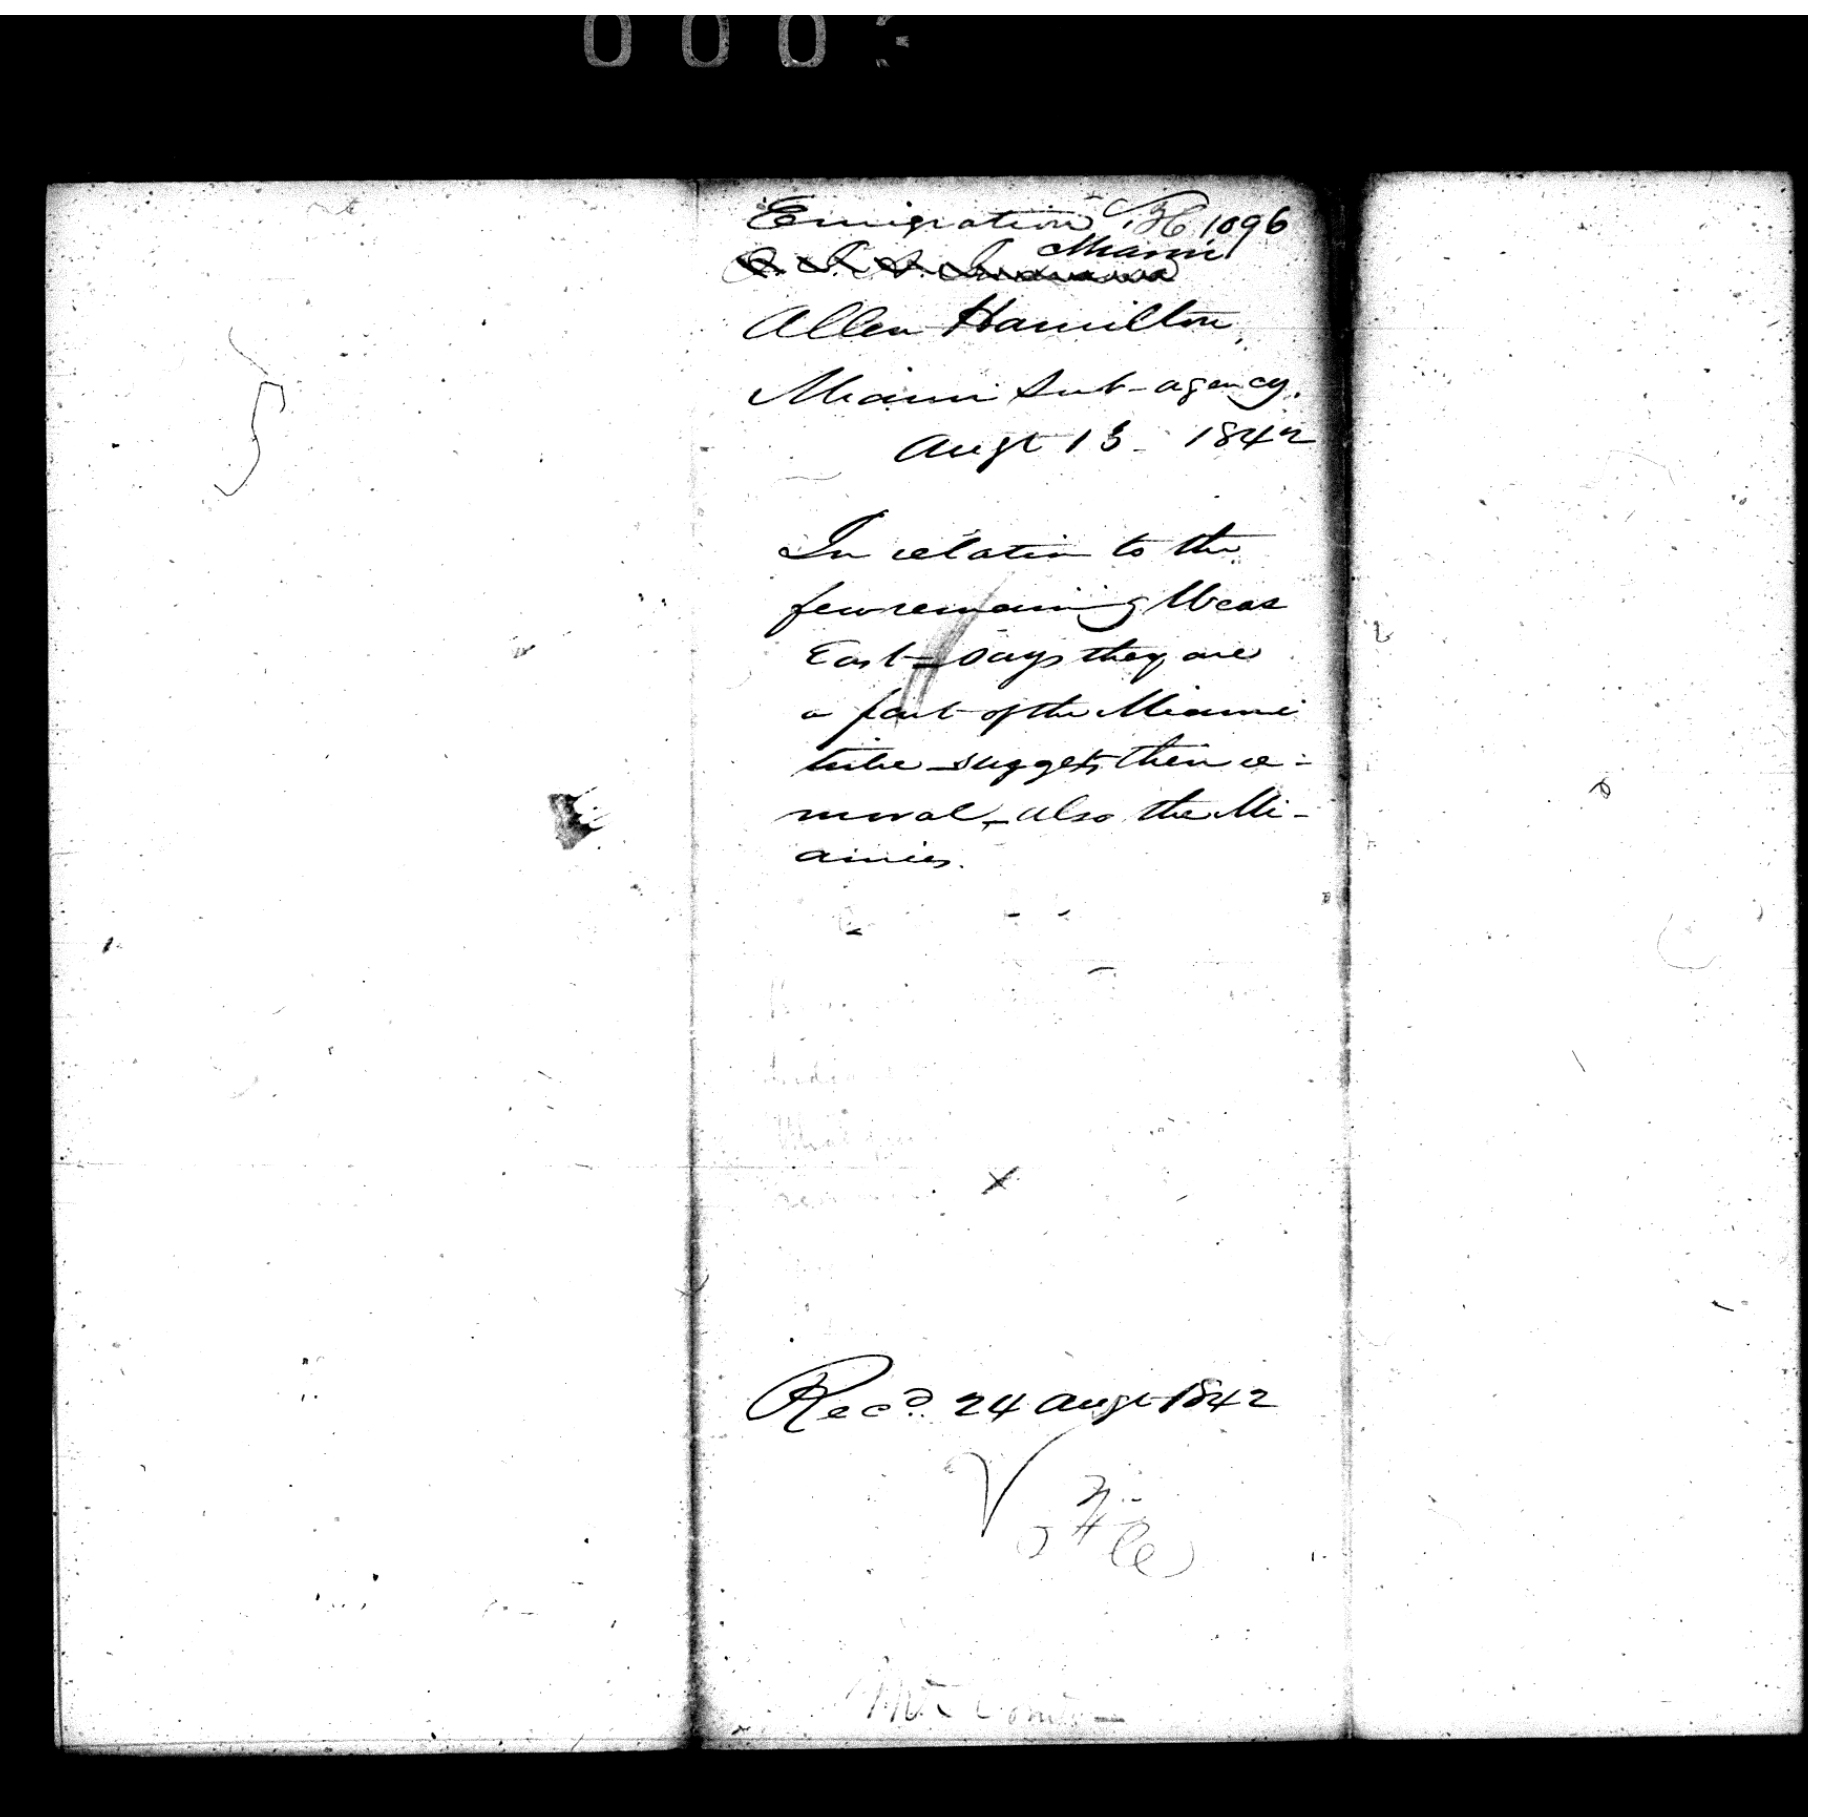 000
Emigration H. 1096
Miami
Indiana
Allen Hamilton,
Miami Sub-agency.
Augt 13. 1842
In relation to the
few remaining Weas
East - says they are
a part of the Miami
tribe - suggests their re-
moval - also the Mi-
amies.
x
Recd. 24 Augt 1842
File